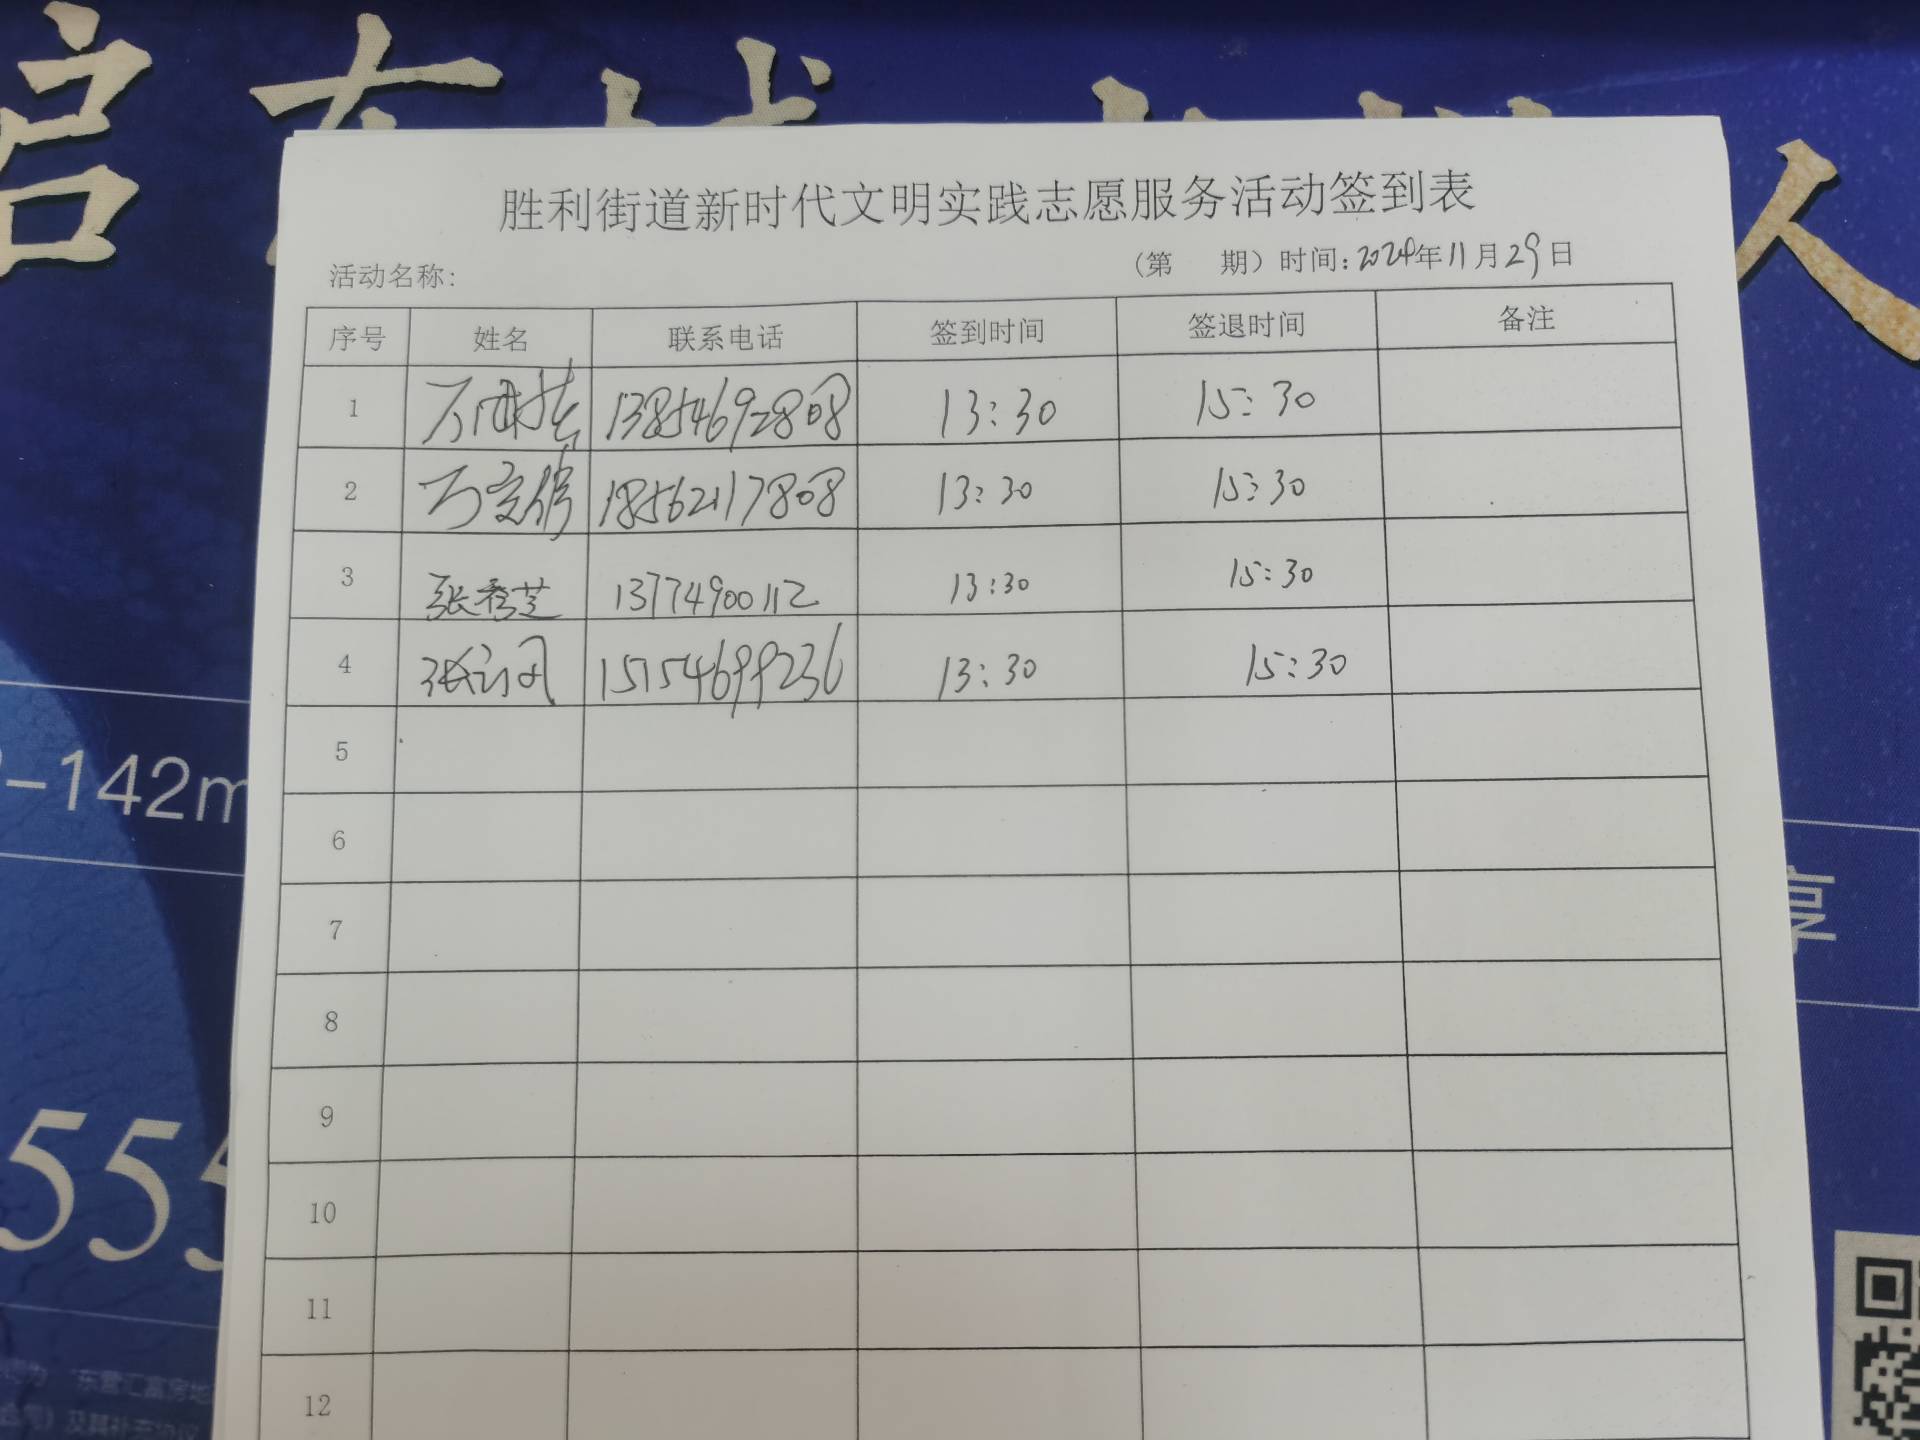 启东城
人
胜利街道新时代文明实践志愿服务活动签到表
活动名称:
（第 期）时间:2024年11月29日
序号 姓名 联系电话 签到时间 签退时间 备注
1 13854692808 13:30 15:30
2 18562117808 13:30 15:30
3 张秀芝 13774900112 13:30 15:30
4 15154699236 13:30 15:30
5
6
7
8
9
10
11
12
-142m
享
555
东营汇富房地